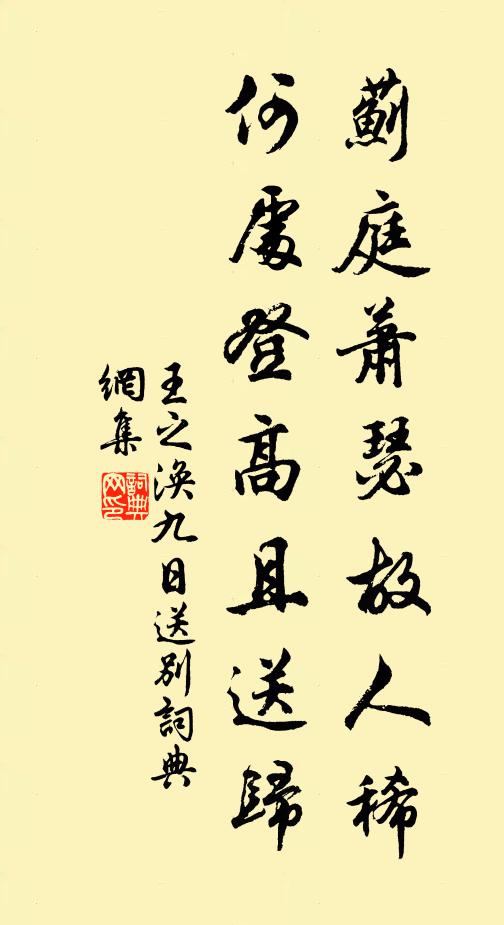 薊庭蕭瑟故人稀
何處登高且送歸
王之渙九日送別詞典
網集
詞典
网印